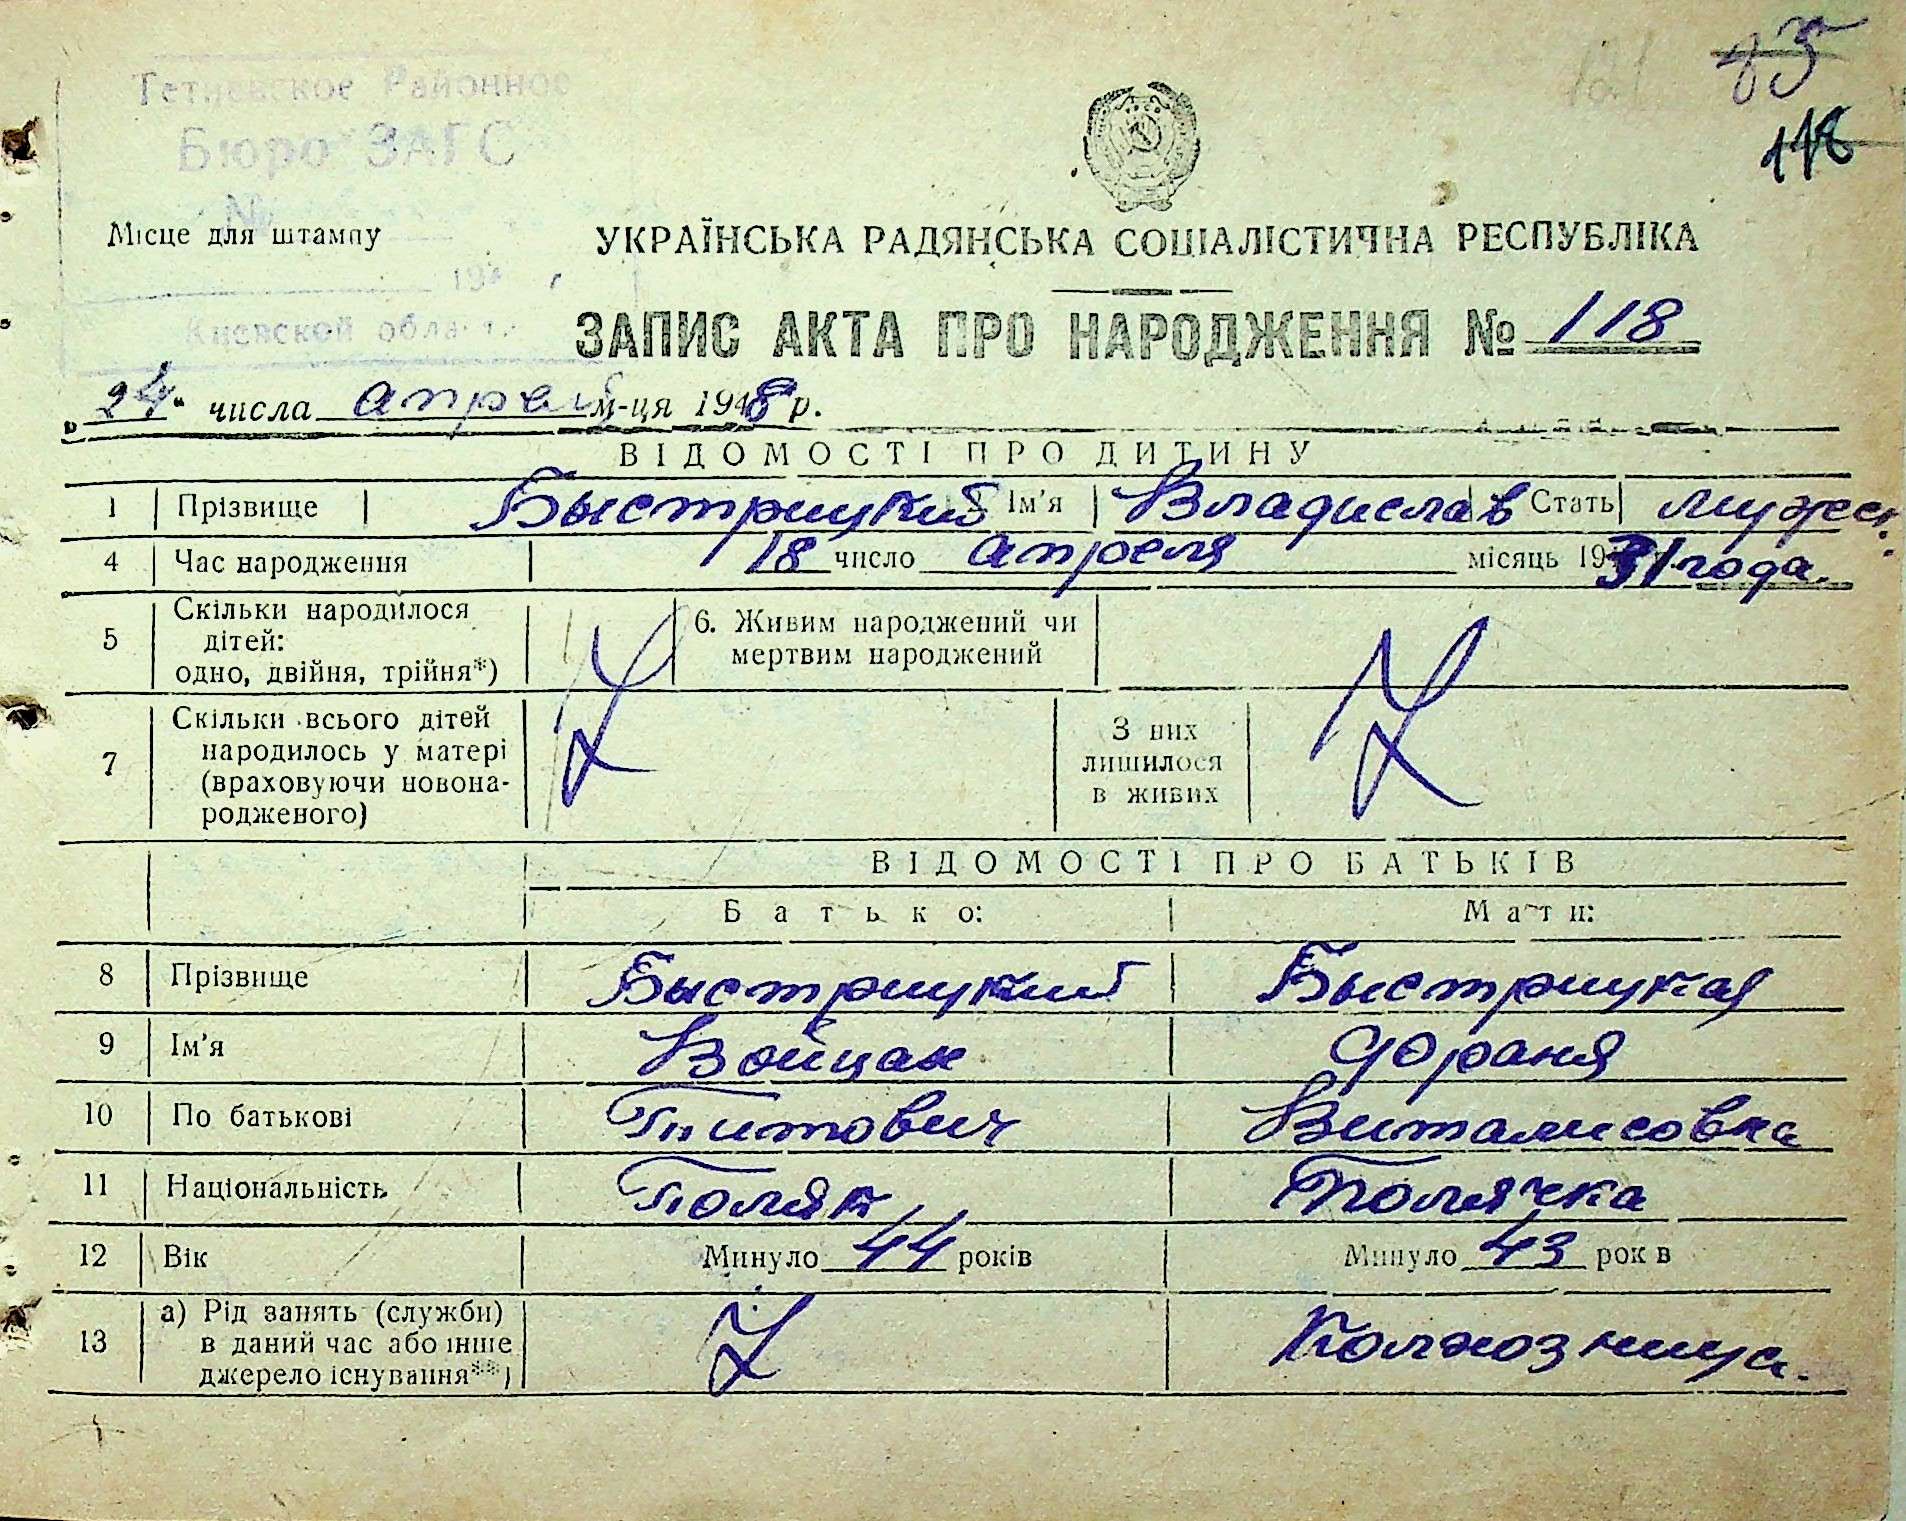 85
118
Районное
Бюро ЗАГС
№
Місце для штампу
194
Киевской област
УКРАЇНСЬКА РАДЯНСЬКА СОЦІАЛІСТИЧНА РЕСПУБЛІКА
ЗАПИС АКТА ПРО НАРОДЖЕННЯ № 118
„24“ числа апреля м-ця 1948 р.
ВІДОМОСТІ ПРО ДИТИНУ
1 Прізвище Быстрицкий Ім'я Владислав Стать мужск.
4 Час народження 18 число апреля місяць 1931 года.
5 Скільки народилося дітей: одно, двійня, трійня*) 6. Живим народжений чи мертвим народжений Z Z
7 Скільки всього дітей народилось у матері (враховуючи новонародженого) З них лишилося в живих
ВІДОМОСТІ ПРО БАТЬКІВ
Батько: Мати:
8 Прізвище Быстрицкий Быстрицкая
9 Ім'я Войцак Юраня
10 По батькові Титович Виталисовна
11 Національність Поляк Полячка
12 Вік Минуло 44 років Минуло 43 років
13 а) Рід занять (служби) в даний час або інше джерело існування**) Z Колхозница.